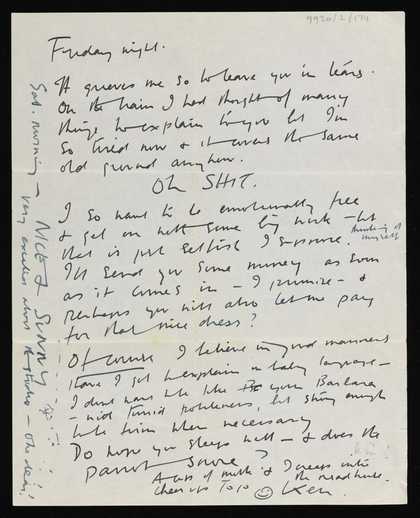 9920/2/174
Friday night.
It grieves me so to leave you in tears.
On the train I had thought of many
things to explain to you but I'm
so tired now & it covers the same
old ground anyhow.
Oh SHIT.
I so want to be emotionally free
& get on with some big work – but
that is just selfish I suppose. thinking of myself
I'll send you some money as soon
as it comes in – I promise – &
perhaps you will also let me pay
for that nice dress?
Of course I believe in good manners
(have I got to explain in baby language –
I dont want to be like your Barbara
– not timid politeness, but strong enough
to be firm when necessary
Do hope you sleep well – & does the
parrot snore?
A cup of milk & I creep into
the
cheerio Toto Ken
Sat. morning – NICE & SUNNY
very excited about the studio – oh dear!